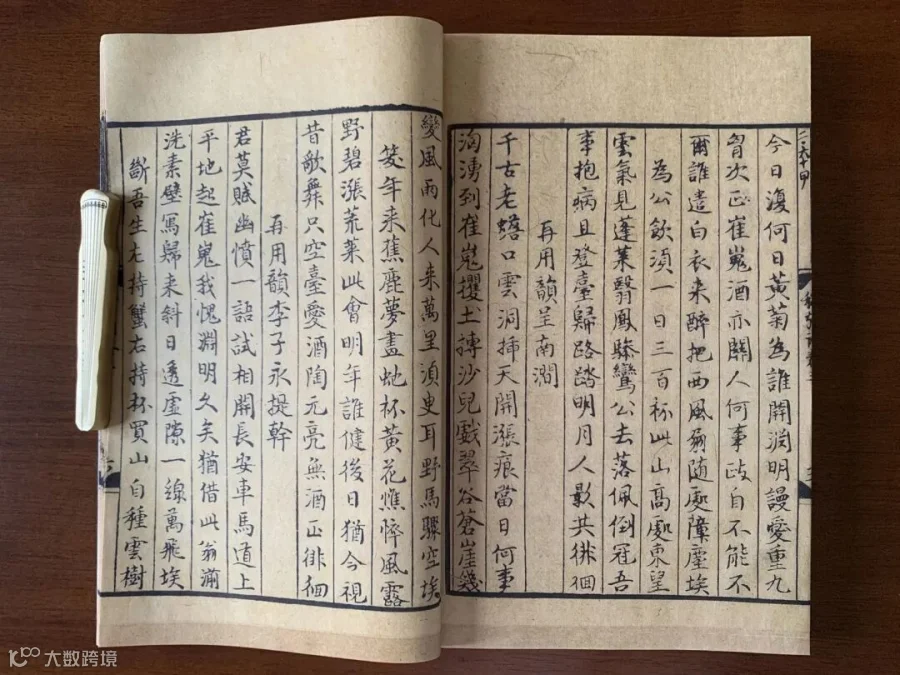 今日復何日黃菊為誰開淵明謾愛重九
胷次正崔嵬酒亦關人何事政自不能不
爾誰遣白衣来醉把西風扇随處障塵埃
為公飲湏一日三百杯此山高處東望
雲氣見蓬萊翳鳳驂鸞公去落佩倒冠吾
事抱病且登臺歸路踏明月人影共徘徊
再用韻呈南澗
千古老蟾口雲洞揷天開漲痕當日何事
洶湧到崔嵬攫土摶沙兒戲翠谷蒼崖幾
變風雨化人来萬里湏臾耳野馬驟空埃
笑年来蕉鹿夢畫虵杯黃花憔悴風露
野碧漲荒萊此會明年誰健後日猶今視
昔歌舞只空臺愛酒陶元亮無酒正徘徊
再用韻李子永提幹
君莫賦幽憤一語試相開長安車馬道上
平地起崔嵬我愧淵明久矣猶借此翁湔
洗素壁寫歸来斜日透虛隙一線萬飛埃
斷吾生左持蟹右持杯買山自種雲樹
大数跨境